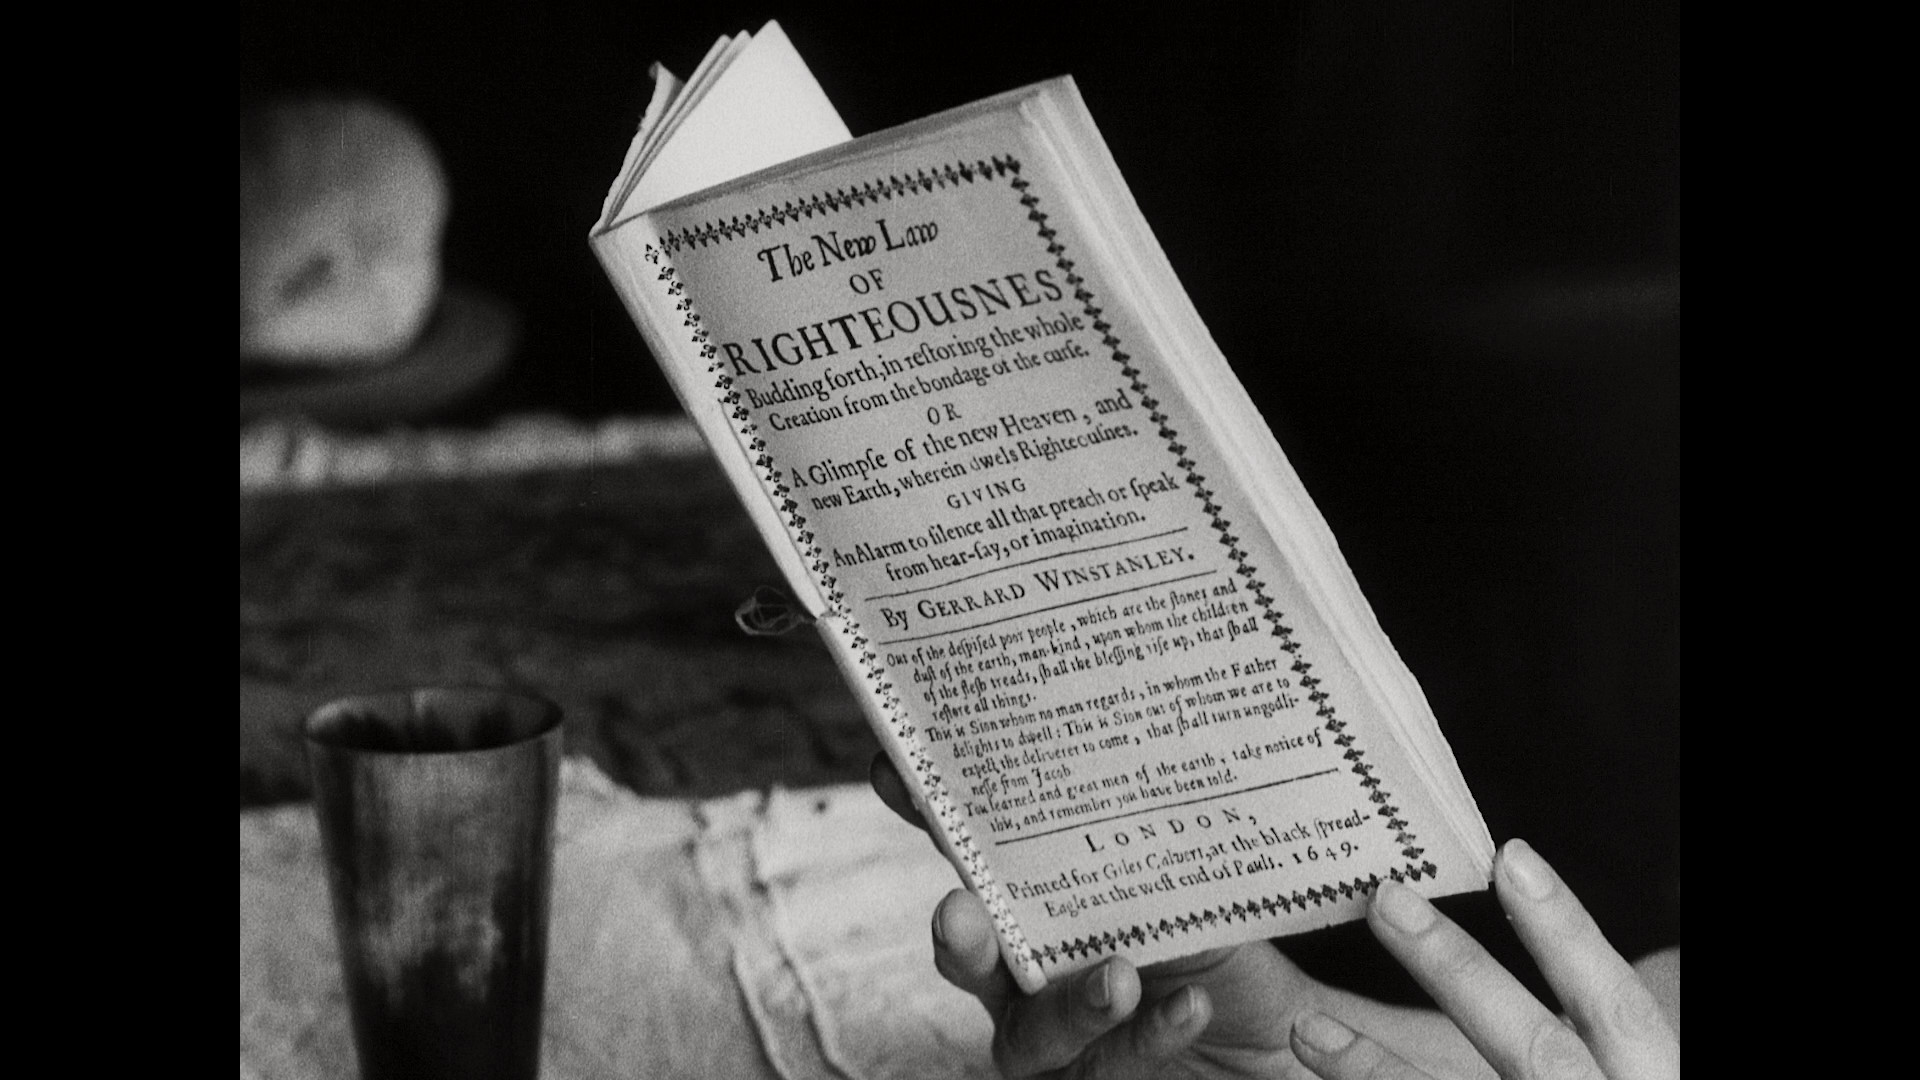 The New Law
OF
RIGHTEOUSNES
Budding forth, in reſtoring the whole
Creation from the bondage of the curſe.
OR
A Glimpſe of the new Heaven, and
new Earth, wherein dwels Righteouſnes.
GIVING
An Alarm to ſilence all that preach or ſpeak
from hear-ſay, or imagination.
By GERRARD WINSTANLEY.
Out of the deſpiſed poor people, which are the ſtones and
duſt of the earth, man-kind, upon whom the children
of the fleſh treads, ſhall the bleſſing riſe up, that ſhall
reſtore all things.
This is Sion whom no man regards, in whom the Father
delights to dwell: This is Sion out of whom we are to
expect the deliverer to come, that ſhall turn ungodli-
neſſe from Jacob
You learned and great men of the earth, take notice of
this, and remember you have been told.
LONDON,
Printed for Giles Calvert, at the black ſpread-
Eagle at the weſt end of Pauls. 1649.